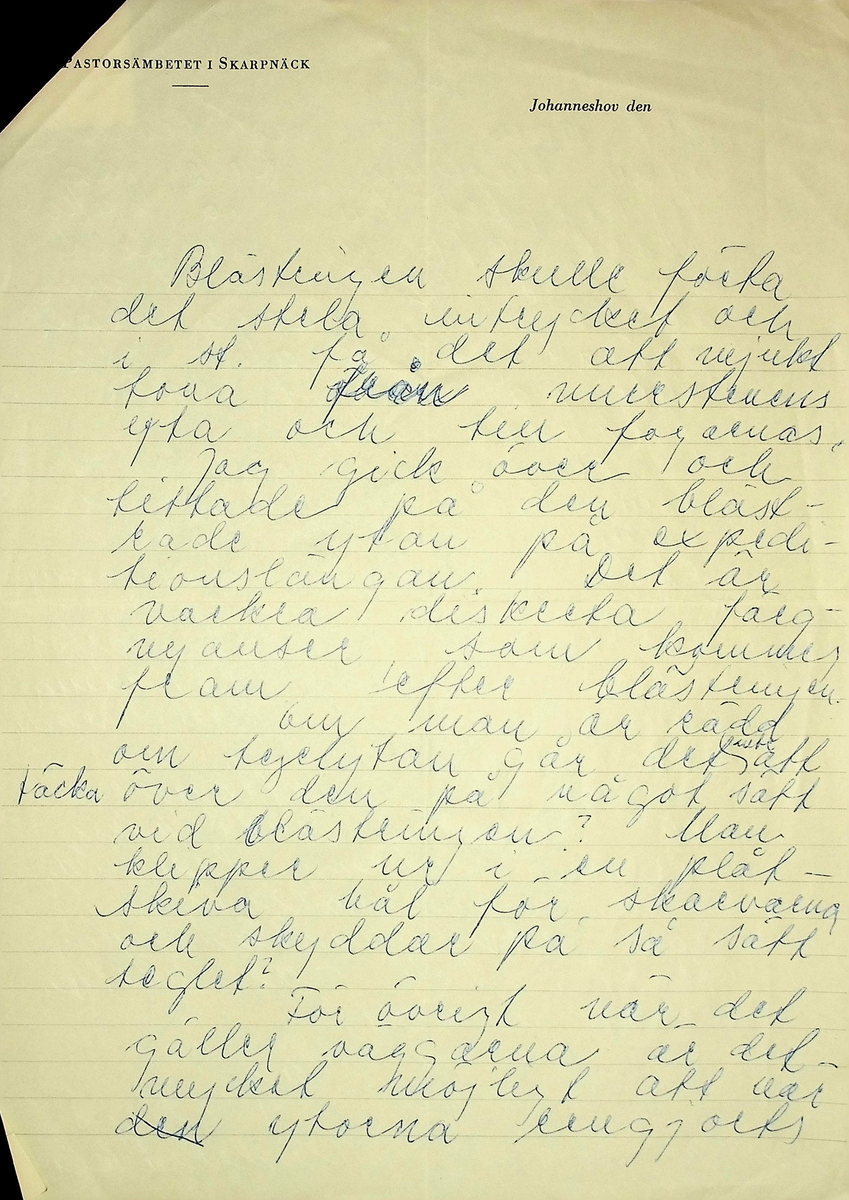 PASTORSÄMBETET I SKARPNÄCK
Johanneshov den
Blästringen skulle förta
det stela intrycket och
i st. få det att mjukt
tona från murstenens
yta och till fogarnas.
Jag gick över och
tittade på den bläst-
rade ytan på expedi-
tionslängan. Det är
vackra diskreta färg-
nyanser som kommer
fram efter blästringen.
Om man är rädd
om tegelytan går det inte att
täcka över den på något sätt
vid blästringen? Man
klipper ur i en plåt-
skiva hål för skarvarna
och skyddar på så sätt
teglet?
För övrigt när det
gäller väggarna är det
mycket möjligt att när
den ytorna rengjorts